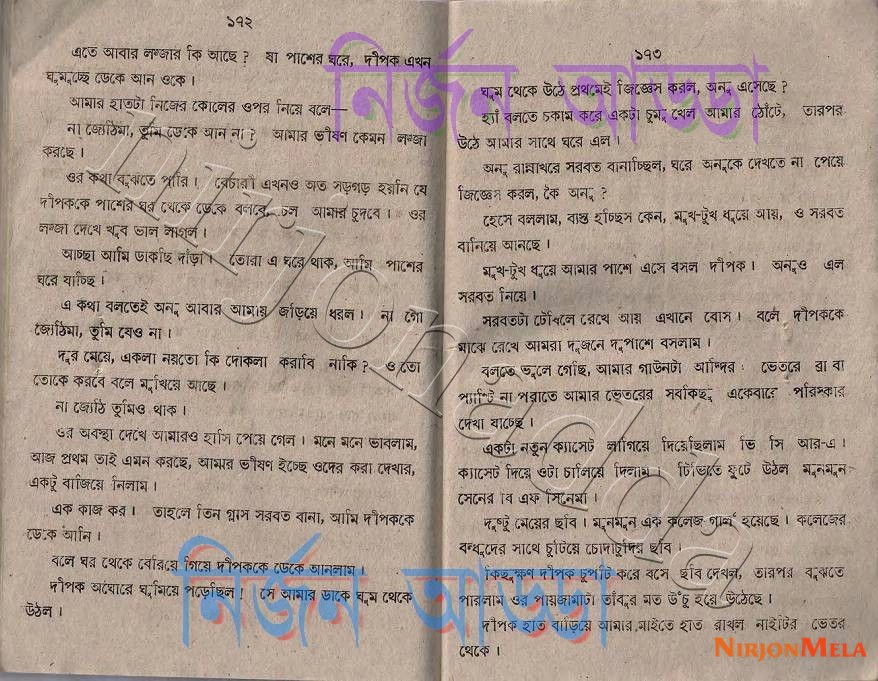 ১৭২
এতে আবার লজ্জার কি আছে ? যা পাশের ঘরে, দীপক এখন
ঘুমুচ্ছে ডেকে আন ওকে ।
আমার হাতটা নিজের কোলের ওপর নিয়ে বলে—
না জ্যেঠিমা, তুমি ডেকে আন না ? আমার ভীষণ কেমন লজ্জা
করছে ।
ওর কথা বুঝতে পারি । বেচারী এখনও অত সড়গড় হয়নি যে
দীপককে পাশের ঘর থেকে ডেকে বলবে, চল আমার চুদবে । ওর
লজ্জা দেখে খুব ভাল লাগল ।
আচ্ছা আমি ডাকছি দাঁড়া । তোরা এ ঘরে থাক, আমি পাশের
ঘরে যাচ্ছি ।
এ কথা বলতেই অনু আবার আমায় জড়িয়ে ধরল । না গো
জ্যেঠিমা, তুমি যেও না ।
দুর মেয়ে, একলা নয়তো কি দোকলা করাবি নাকি ? ও তো
তোকে করবে বলে মুখিয়ে আছে ।
না জ্যেঠি তুমিও থাক ।
ওর অবস্থা দেখে আমারও হাসি পেয়ে গেল । মনে মনে ভাবলাম,
আজ প্রথম তাই এমন করছে, আমার ভীষণ ইচ্ছে ওদের করা দেখার,
একটু বাজিয়ে নিলাম ।
এক কাজ কর । তাহলে তিন গ্লাস সরবত বানা, আমি দীপককে
ডেকে আনি ।
বলে ঘর থেকে বেরিয়ে গিয়ে দীপককে ডেকে আনলাম ।
দীপক অঘোরে ঘুমিয়ে পড়েছিল ! সে আমার ডাকে ঘুম থেকে
উঠল ।
১৭৩
ঘুম থেকে উঠে প্রথমেই জিজ্ঞেস করল, অনু এসেছে ?
হ্যাঁ বলতে চকাম করে একটা চুমু খেল আমার ঠোঁটে, তারপর
উঠে আমার সাথে ঘরে এল ।
অনু রান্নাঘরে সরবত বানাচ্ছিল, ঘরে অনুকে দেখতে না পেয়ে
জিজ্ঞেস করল, কৈ অনু ?
হেসে বললাম, ব্যস্ত হচ্ছিস কেন, মুখ-টুখ ধুয়ে আয়, ও সরবত
বানিয়ে আনছে ।
মুখ-টুখ ধুয়ে আমার পাশে এসে বসল দীপক । অনুও এল
সরবত নিয়ে ।
সরবতটা টেবিলে রেখে আয় এখানে বোস । বলে দীপককে
মাঝে রেখে আমরা দুজনে দুপাশে বসলাম ।
বলতে ভুলে গেছি, আমার গাউনটা আদ্দির ভেতরে ব্রা বা
প্যান্টি না পরাতে আমার ভেতরের সবকিছু একেবারে পরিস্কার
দেখা যাচ্ছে ।
একটা নতুন ক্যাসেট লাগিয়ে দিয়েছিলাম ভি সি আর-এ ।
ক্যাসেট দিয়ে ওটা চালিয়ে দিলাম । টিভিতে ফুটে উঠল মুনমুন
সেনের বি এফ সিনেমা ।
দুষ্টু মেয়ের ছবি । মুনমুন এক কলেজ গার্ল হয়েছে । কলেজের
বন্ধুদের সাথে চুটিয়ে চোদাচুদির ছবি ।
কিছুক্ষণ দীপক চুপটি করে বসে ছবি দেখল, তারপর বুঝতে
পারলাম ওর পায়জামাটা তাঁবুর মত উঁচু হয়ে উঠেছে ।
দীপক হাত বাড়িয়ে আমার মাইতে হাত রাখল নাইটির ভেতর
থেকে ।
নির্জন আড্ডা
নির্জন আড্ডা
Nirjonadda
NIRJONMELA